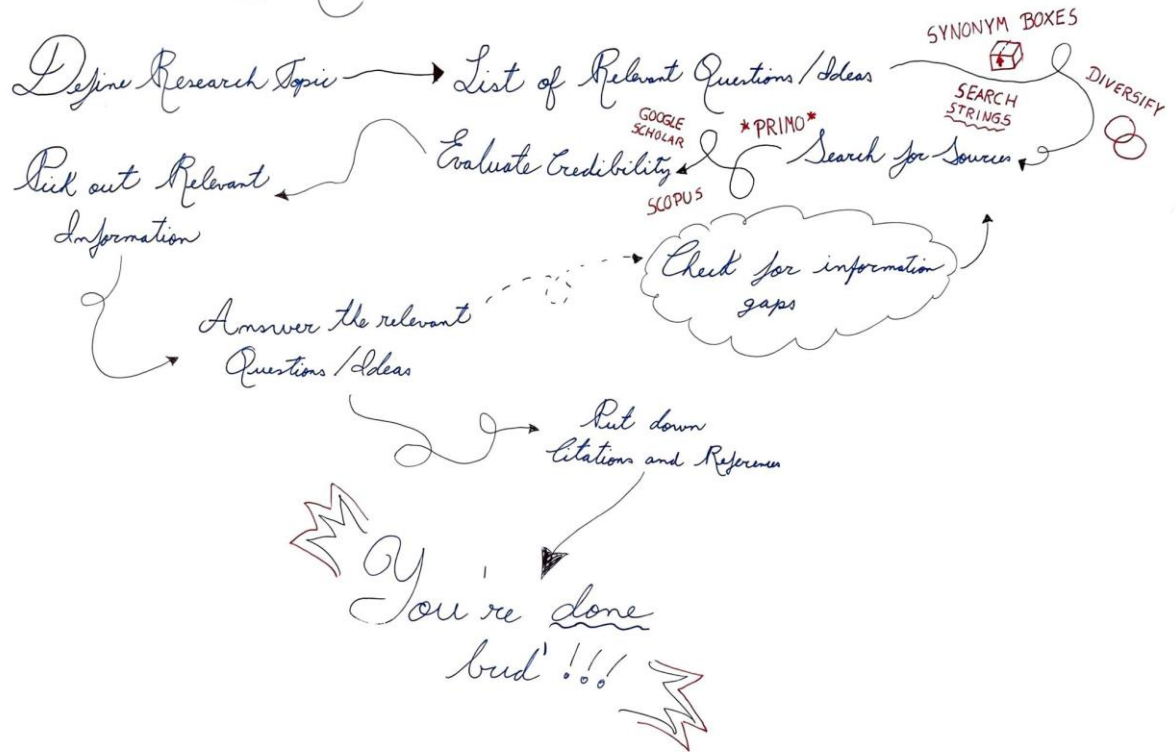 Define Research Topic
List of Relevant Questions/Ideas
SYNONYM BOXES
SEARCH
STRINGS
DIVERSIFY
Search for Sources
*PRIMO*
GOOGLE
SCHOLAR
SCOPUS
Evaluate Credibility
Pick out Relevant
Information
Answer the relevant
Questions/Ideas
Check for information
gaps
Put down
Citations and References
You're done
bud'!!!